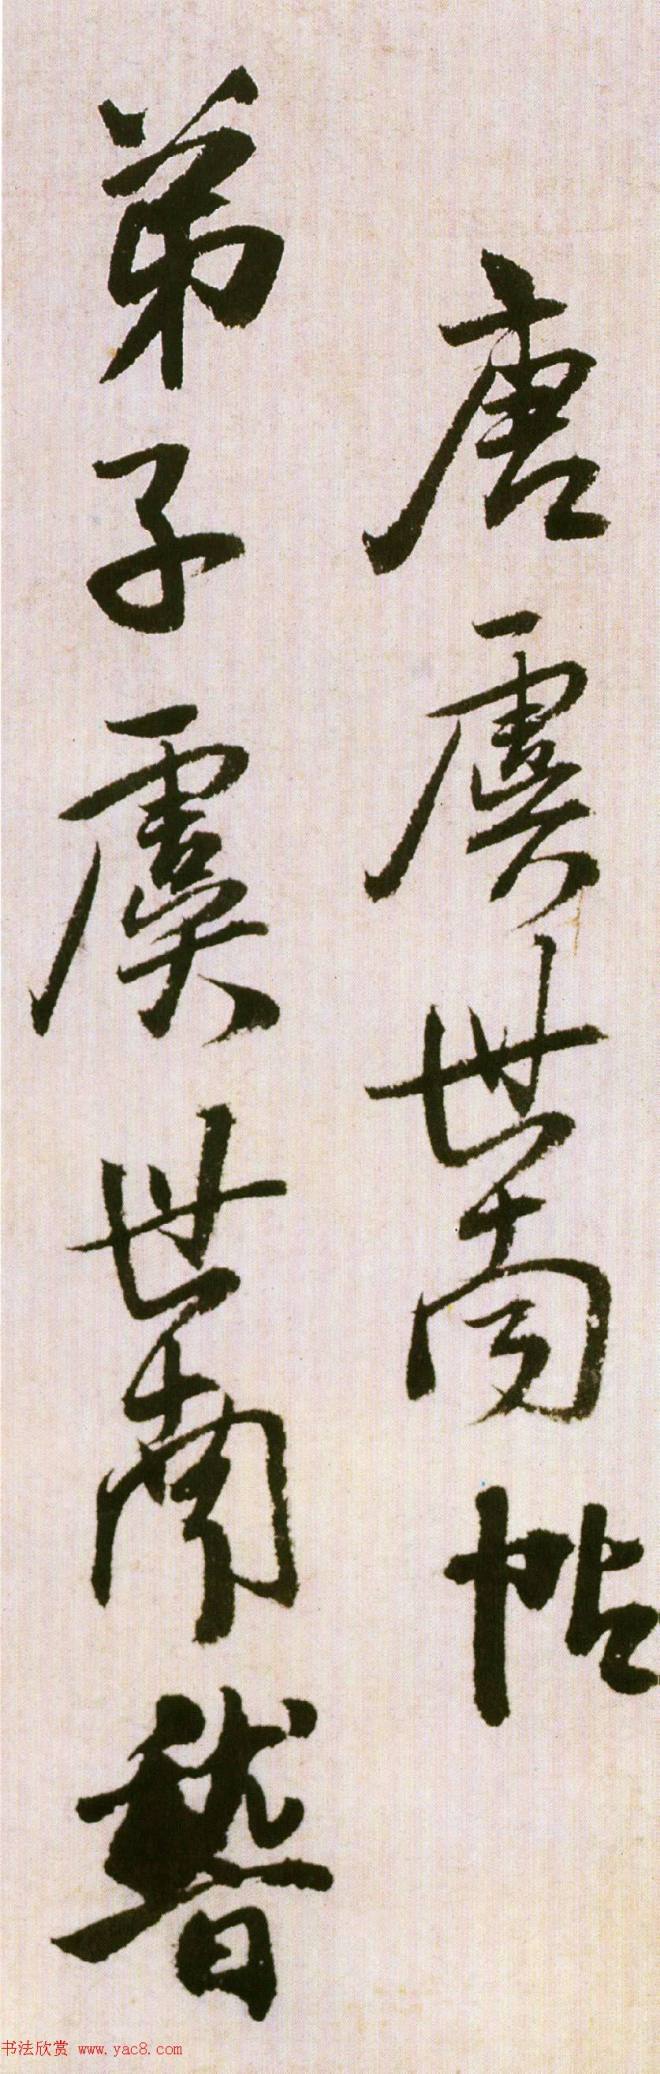 唐虞世南帖
弟子虞世南稽
书法欣赏 www.yac8.com